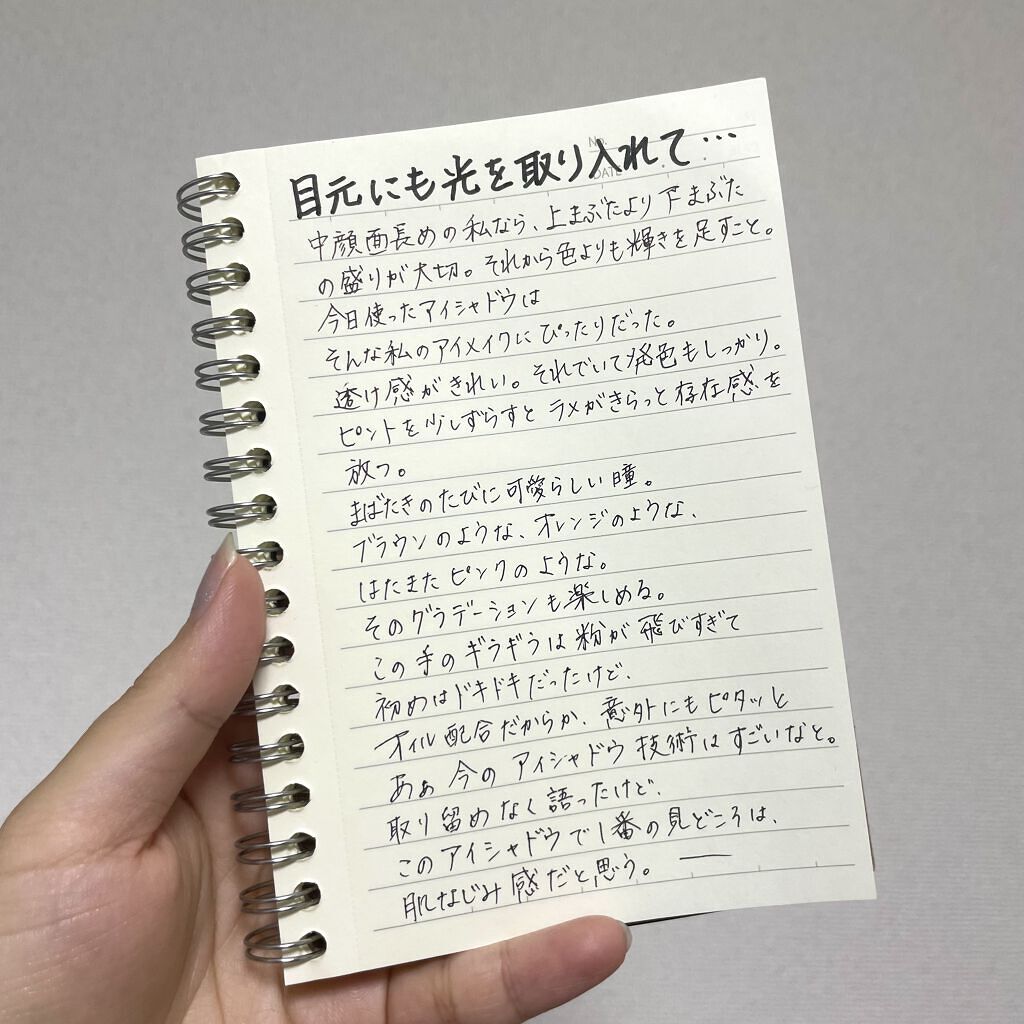 No.
DATE
目元にも光を取り入れて…
中顔面長めの私なら、上まぶたより下まぶた
の盛りが大切。それから色よりも輝きを足すこと。
今日使ったアイシャドウは
そんな私のアイメイクにぴったりだった。
透け感がきれい。それでいて発色もしっかり。
ピントを少しずらすとラメがきらっと存在感を
放つ。
まばたきのたびに可愛らしい瞳。
ブラウンのような、オレンジのような、
はたまたピンクのような。
そのグラデーションも楽しめる。
この手のギラギラは粉が飛びすぎて
初めはドキドキだったけど、
オイル配合だからか、意外にもピタッと
あぁ今のアイシャドウ技術はすごいなと。
取り留めなく語ったけど、
このアイシャドウで1番の見どころは、
肌なじみ感だと思う。